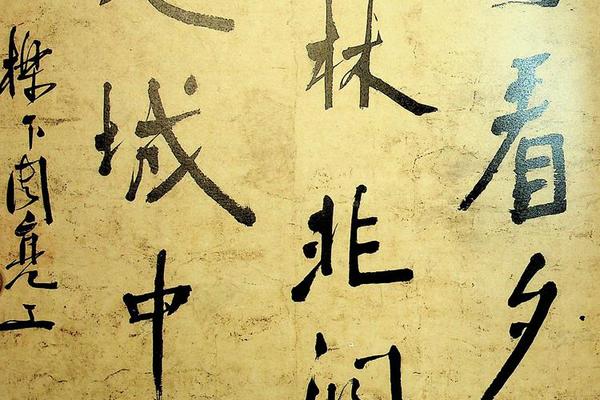 看夕
林非
城中
櫟下周亮工